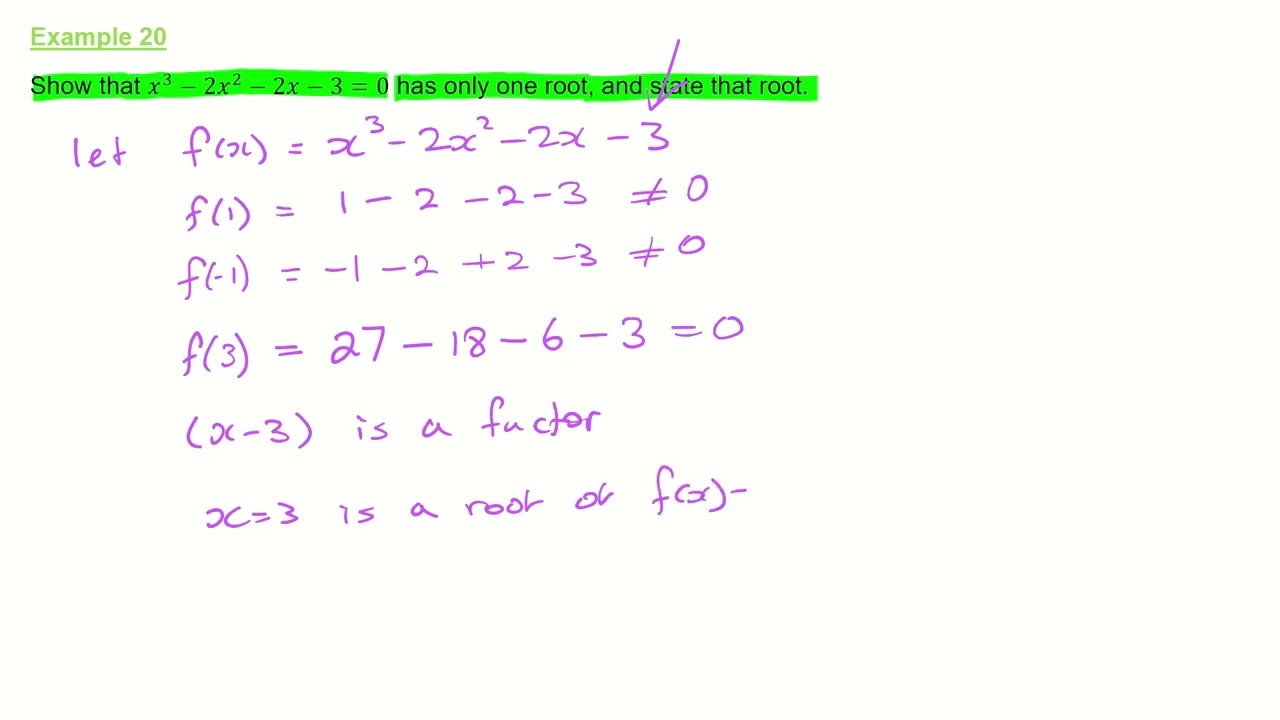 Example 20
Show that x³ − 2x² − 2x − 3 = 0 has only one root, and state that root.
let f(x) = x³ - 2x² - 2x - 3
f(1) = 1 - 2 - 2 - 3 ≠ 0
f(-1) = -1 - 2 + 2 - 3 ≠ 0
f(3) = 27 - 18 - 6 - 3 = 0
(x-3) is a factor
x=3 is a root of f(x)-